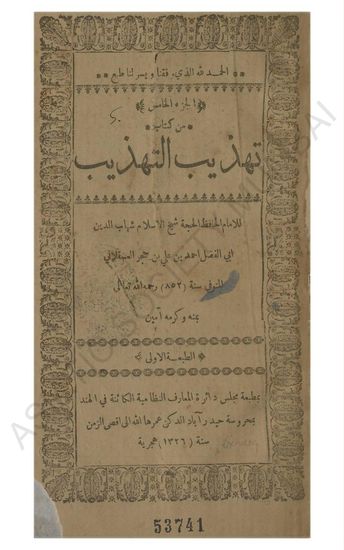 الحمد لله الذي وفقنا ويسر لنا طبع
الجزء الخامس
من كتاب
تهذيب التهذيب
للامام الحافظ الحجة شيخ الاسلام شهاب الدين
ابي الفضل احمد بن علي بن حجر العسقلاني
المتوفى سنة (٨٥٢) رحمه الله تعالى
بمنه وكرمه آمين
الطبعة الاولى
بمطبعة مجلس دائرة المعارف النظامية الكائنة في الهند
بمحروسة حيدرآباد الدكن عمرها الله الى اقصى الزمن
سنة (١٣٢٦) هجرية
53741